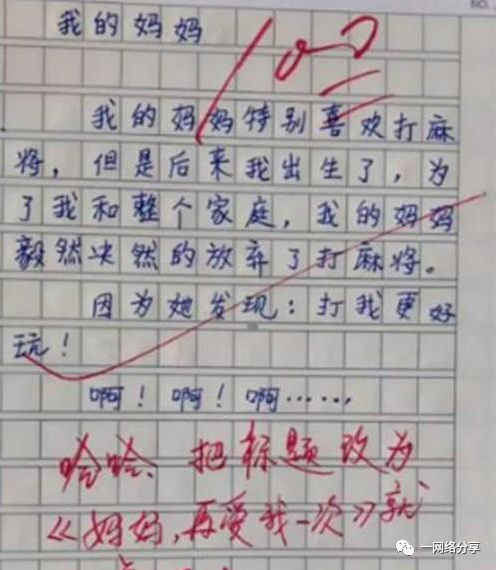 NO.
我的妈妈
我的妈妈特别喜欢打麻
将，但是后来我出生了，为
了我和整个家庭，我的妈妈
毅然决然的放弃了打麻将。
因为她发现：打我更好
玩！
啊！啊！啊……，
哈哈、把标题改为
《妈妈，再爱我一次》就
一网络分享